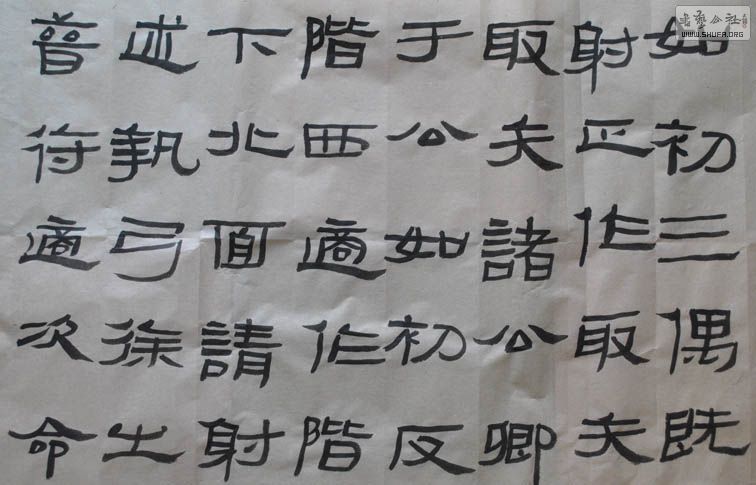 如初三偶既
射正作取矢
取矢諸公卿
于公如初反
階西適作階
下北面請射
執弓徐
待適次命
書藝公社
WWW.SHUFA.ORG